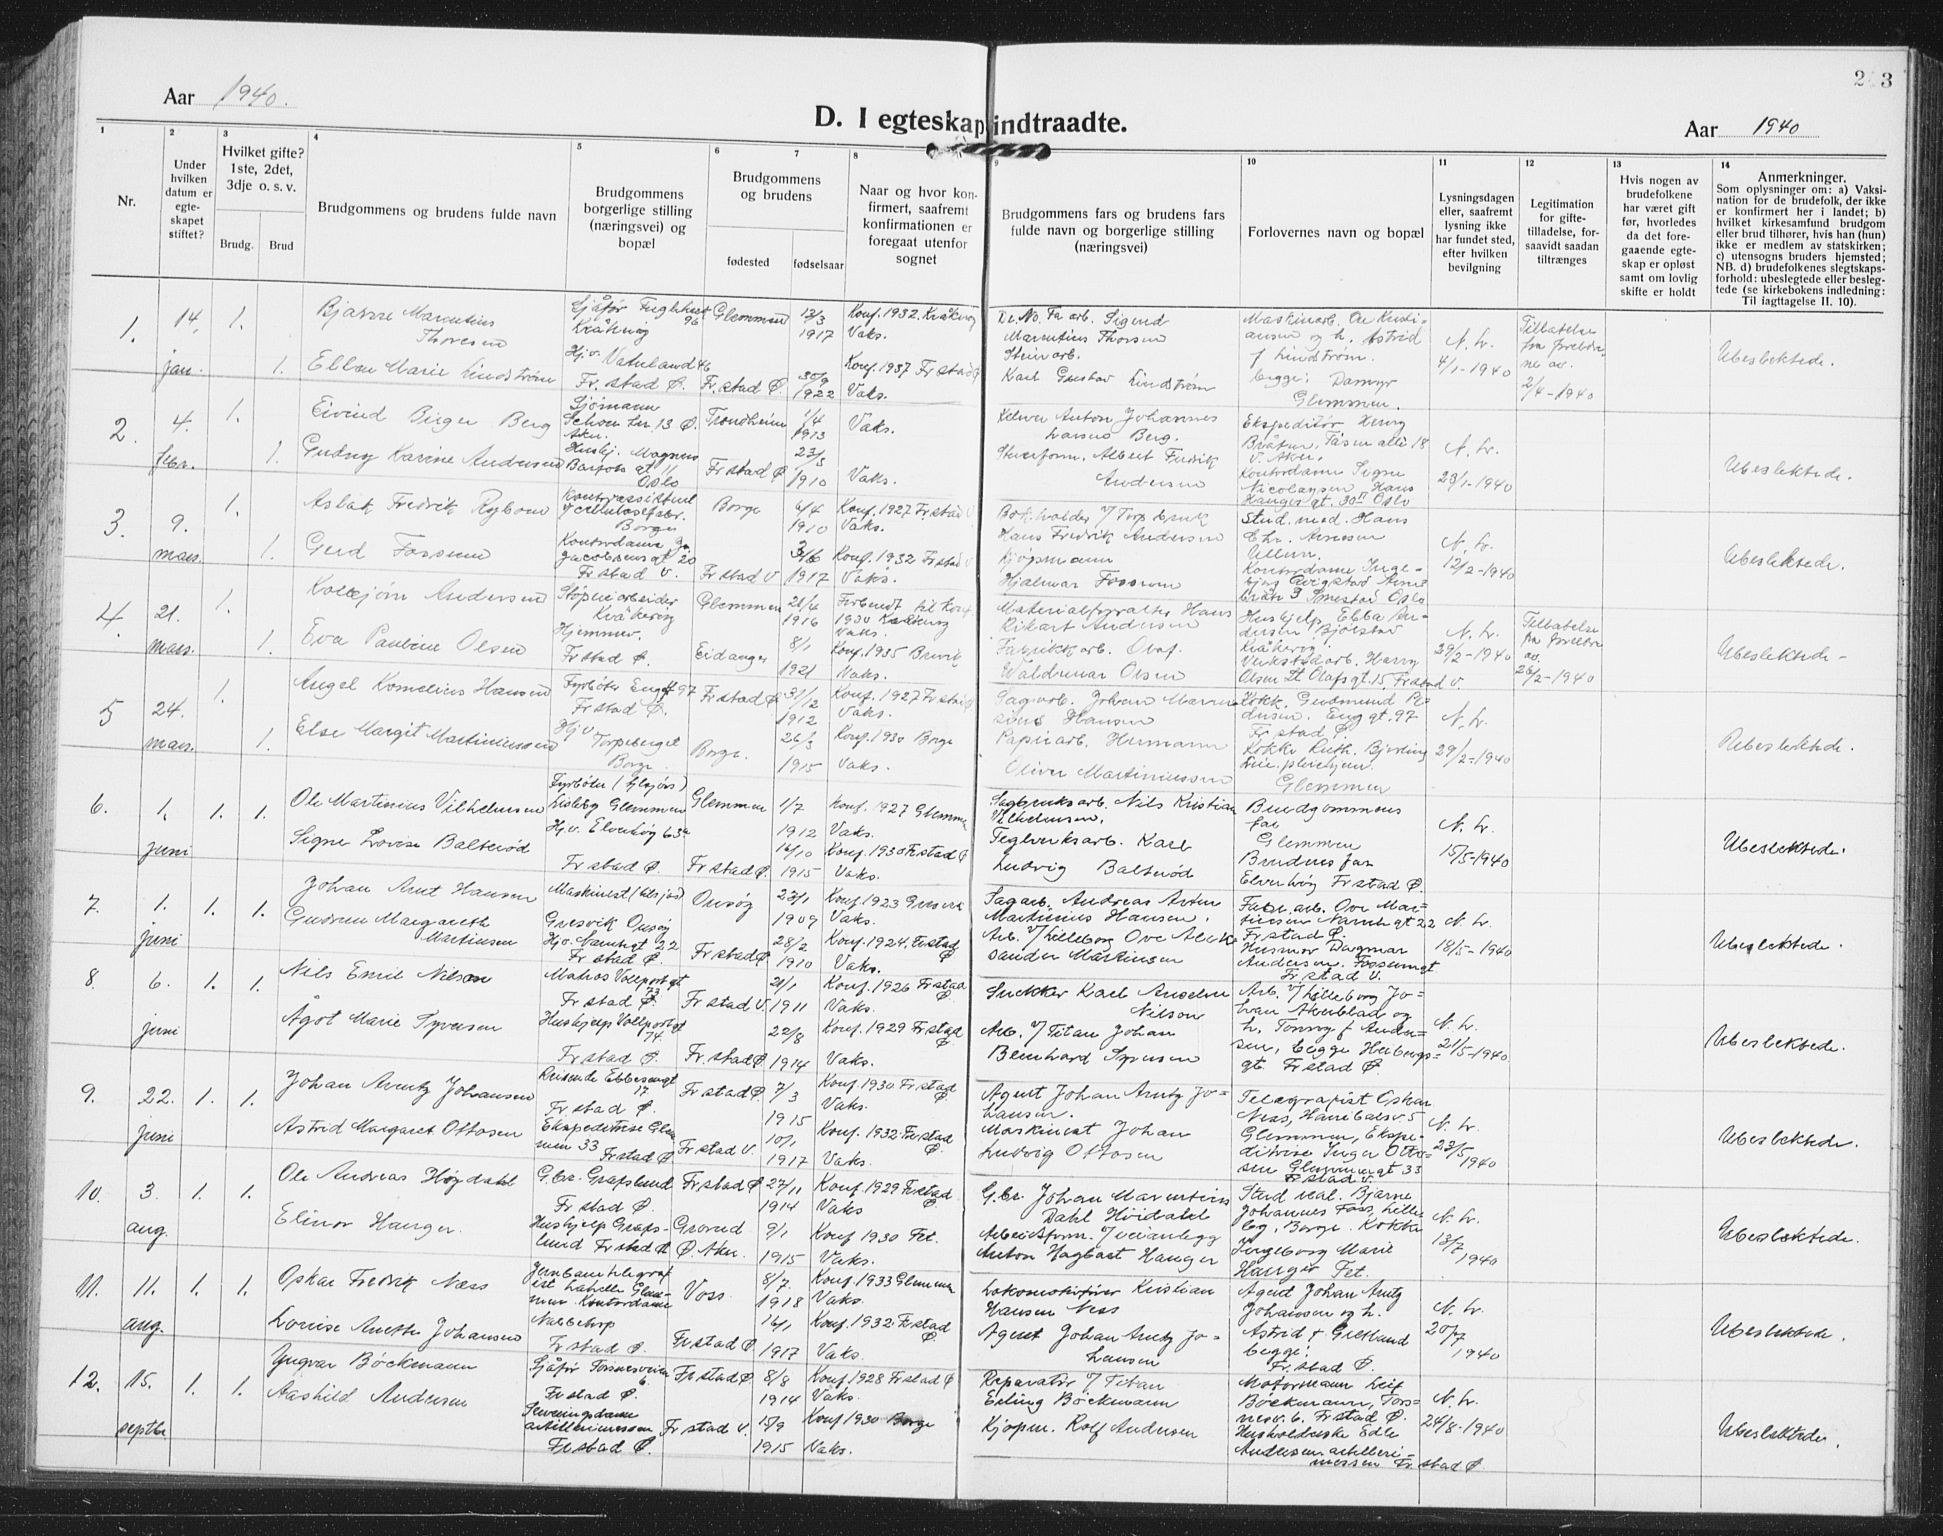 Aar 1940.
D. I egteskap indtraadte.
Aar 1940
2 3
1
2
3
4
5
6
7
8
9
10
11
12
13
14
Nr.
Under hvilken datum er egte-skapet stiftet?
Hvilket gifte? 1ste, 2det, 3dje o. s. v.
Brudg.
Brud
Brudgommens og brudens fulde navn
Brudgommens borgerlige stilling (næringsvei) og bopæl
Brudgommens og brudens
fødested
fødselsaar
Naar og hvor kon-firmert, saafremt konfirmationen er foregaat utenfor sognet
Brudgommens fars og brudens fars fulde navn og borgerlige stilling (næringsvei)
Forlovernes navn og bopæl
Lysningsdagen eller, saafremt lysning ikke har fundet sted, efter hvilken bevilgning
Legitimation for gifte-tilladelse, for-saavidt saadan tiltrænges
Hvis nogen av brudefolkene har været gift før, hvorledes da det fore-gaaende egte-skap er opløst samt om lovlig skifte er holdt
Anmerkninger.
Som oplysninger om: a) Vaksi-nation for de brudefolk, der ikke er konfirmert her i landet; b) hvilket kirkesamfund brudgom eller brud tilhører, hvis han (hun) ikke er medlem av statskirken; c) utensogns bruders hjemsted; NB. d) brudefolkenes slegtskaps-forhold: ubeslegtede eller besleg-tede (se kirkebokens indledning: Til iagttagelse II. 10).
1. 14. jan. 1. 1.
Bjarne Marentius Thoresen
Glemmen 13/3 1917 Konf. 1932 Kråkerøy Vaks.
Ellen Marie Lindstrøm
Fr.stad Ø. Fr.stad Ø 30/9 1922 Konf. 1937 Fr.stad Ø Vaks.
Marentius Thorsen
Steinarb.
Karl Gustav Lindstrøm
begge: Damyr
Glemmen.
N. L. 4/1-1940
2/4-1940
Ubeslektede.
2 4. febr. 1. 1.
Eivind Birger Berg
Sjømann
Trondheim 1/4 1913 Vaks.
Gudny Karine Andersen
Oslo
Fr.stad Ø 23/3 1910 Vaks.
Anton Johannes
Larens Berg.
Albert Fredrik
Andersen
Ekspeditør Henry
V. Aker.
Kontordame Signe
Nicolaysen Hans
Hauges gt. 30 II Oslo
N. L. 23/1-1940
Ubeslektede.
3. 9. mars. 1. 1.
Aslak Fredrik
Borge 6/4 1910 Konf. 1927 Fr.stad Vaks.
Gerd Fossum
Kontordame
Jacobsens gt 20
Fr.stad V. Fr.stad V 3/6 1917 Konf. 1932 Fr.stad V Vaks.
Hans Fredrik Andersen
Kjøpmann
Hjalmar Fossum
Stud. med. Hans
Chr. Arnesen
Ullern.
Kontordame
Smestad Oslo
N. L. 12/2-1940
Ubeslektede.
4 21. mars. 1. 1.
Kolbjørn Andersen
Støperiarbeider
Kråkerøy
Glemmen 21/4 1916
Vaks.
Eva Pauline Olsen
Hjemmev.
Fr.stad Ø. Eidanger 8/1 1921 Konf. 1935 Brevik Vaks.
Materialforvalter Hans
Rikart Andersen
Fabrikkarb. Olaf
Waldemar Olsen
Hushjelp Ebba An-
dersen Bjølstad
Kråkerøy.
Verkstedarb. Harry
Olsen St. Olafs gt. 15, Fr.stad V.
N. L. 29/2-1940
26/2-1940
Ubeslektede-
5 24. mars. 1. 1.
Angel Kornelius Hansen
Fyrbøter Enggt 97
Fr.stad Ø. Fr.stad Ø 31/12 1912 Konf. 1927 Fr.stad Ø Vaks.
Else Margit Martiniussen
Hjv
Torpeberget
Borge. Borge. 26/3 1915 Konf. 1930 Borge Vaks.
Sagarb. Johan Marin-
sius Hansen
Papirarb. Hermann
Oliver Martiniussen
Kokk. Gudmund Pe-
dersen. Enggt. 97
Fr.stad Ø.
Kokke Ruth. Bjerling
Glemmen
N. L. 29/2-1940
Ubeslektede.
6. 1. juni 1. 1.
Ole Martinius Vilhelmsen
Lisleby Glemmen
Glemmen 1/7 1912 Konf. 1927 Glemmen Vaks.
Signe Lovise Balterød
Hj.v. Elverhøy 63a
Fr.stad Ø. Fr.stad Ø 16/10 1915 Konf. 1930 Fr.stad Ø Vaks.
Sagbruksarb. Nils Kristian
Vilhelmsen.
Teglverksarb. Karl
Ludvig Balterød
Brudgommens
far
Glemmen
Brudens far
Elverhøy Fr.stad Ø.
N. L. 15/5-1940
Ubeslektede.
7. 1. juni 1. 1.
Johan Arnt Hansen
Gressvik Onsøy
Onsøy 23/1 1909 Konf. 1923 Gressvik Vaks.
Gudrun Margareth
Martinsen
Hj.v. Narnhgt 22
Fr.stad Ø. Fr.stad Ø 28/2 1910 Konf. 1924. Fr.stad Ø Vaks.
Sagarb. Andreas Anton
Martinius Hansen.
Arb. v/Lilleborg Ove Alek-
sander Martinsen
Fabr.arb. Ove Mar-
tinsen Narnhgt 22
Fr.stad Ø.
Husmor Dagmar
Andersen. Fossumgt
Fr.stad V.
N. L. 18/5-1940
Ubeslektede.
8. 6. juni 1. 1.
Nils Emil Nilsen
Matros Vollportgt
73
Fr.stad Ø. Fr.stad V. 21/1 1911 Konf. 1926 Fr.stad Ø. Vaks.
Ågot Marie Syversen
Hushjelp Vollportgt
74.
Fr.stad Ø. Fr.stad Ø 22/8 1914 Konf. 1929 Fr.stad Ø. Vaks.
Snekker Karl Anselm
Nilsen
Arb. v/Titan Johan
Bernhard Syversen
Arb. v/Lilleborg Jo-
han Akerblad og
h. Tonny f. Ander-
sen, begge Heibergs-
gt. Fr.stad Ø.
N. L. 21/5-1940
Ubeslektede.
9. 22. juni 1. 1.
Johan Arntz Johansen
Reisende Ebbesensgt
17.
Fr.stad Ø. Fr.stad Ø. 7/3 1915 Konf. 1930 Fr.stad Ø. Vaks.
Astrid Margaret Ottosen
Ekspeditrise Glem
men 33 Fr.stad Ø Fr.stad V. 10/1 1917 Konf. 1932. Fr.stad Ø. Vaks.
Agent Johan Arntz Jo-
hansen.
Maskinist Johan
Ludvig Ottosen
Telegrafist Oskar
Ness, Hannibalsv. 5
Glemmen, Ekspe-
ditrise Inger Otto-
sen Glemmengt 33
Fr.stad V.
N. L. 23/5 1940
Ubeslektede.
10. 3. aug. 1. 1.
Ole Andreas Høydahl
G.br. Grafslund
Fr.stad Ø. Fr.stad Ø 27/11 1914 Konf. 1929 Fr.stad Ø. Vaks
Elinor Hanger.
Hushjelp Grafs-
lund Fr.stad Ø Grorud Ø. Aker. 9/1 1915 Konf 1930 Fet. Vaks.
G.br. Johan Marentius
Dahl Høidahl
Arbeidsform. v/veianlegg
Anton Hagbart Hanger
Stud real. Bjarne
Johannes Foss, Lille-
by, Borge. Kokke
Ingeborg Marie
Hanger Fet.
N. L. 13/7 1940
Ubeslektede.
11. 11. aug. 1. 1.
Oskar Fredrik Næss
Voss. 8/7 1918 Konf. 1933 Glemmen Vaks.
Lovise Anette Johansen
Nabbetorp
Fr.stad Ø. Fr.stad Ø 16/1 1917 Konf. 1932. Fr.stad Ø Vaks.
Lokomotivfører Kristian
Hansen Ness
Agent Johan Arntz Jo-
hansen
Agent Johan Arntz
Johansen og h.
Astrid f. Gretland
begge:
Fr.stad Ø.
N. L. 20/7 1940
Ubeslektede.
12. 15. septbr 1. 1.
Yngvar Bøckmann
Sjåfør Torsnesveien
6.
Fr.stad Ø. Fr.stad Ø 8/8 1914 Konf 1928 Fr.stad Ø Vaks.
Aashild Andersen
Serveringsdame
artillerimessen
Fr.stad Ø. Fr.stad V. 15/9 1915 Konf 1930 Borge Vaks.
Reparatør v/Titan
Erling Bøckmann
Kjøpm. Rolf Andersen
Motormann Leif
Bøckmann, Tors-
nesv. 6. Fr.stad Ø.
Husholderske Edle
Andersen. artilleri-
messen Fr.stad Ø.
N. L. 24/8-1940
Ubeslektede.